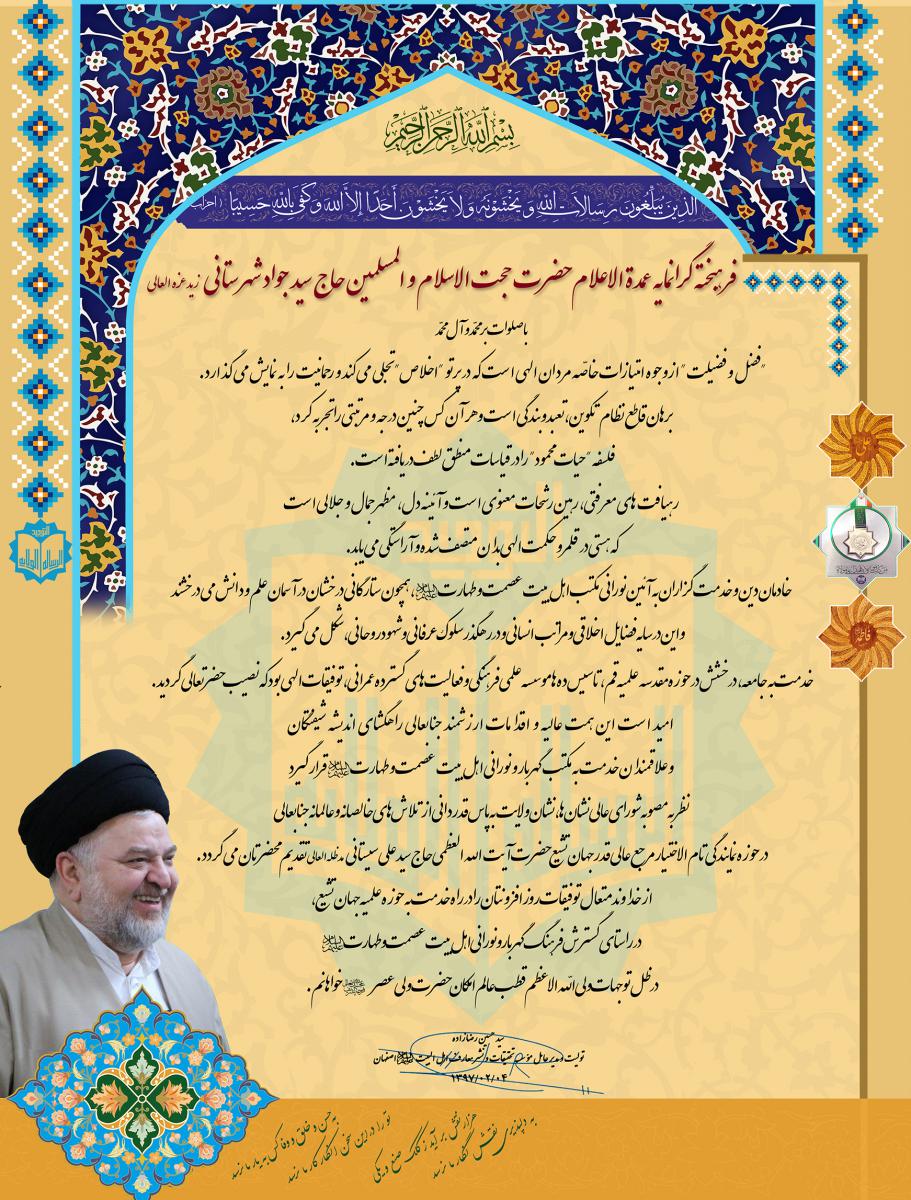 بسم الله الرحمن الرحیم
الذین یبلغون رسالات الله و یخشونه ولا یخشون أحدا إلا الله وکفی بالله حسیبا احزاب
فرهیخته گرانمایه عمدة الاعلام حضرت حجت الاسلام و المسلمین حاج سید جواد شهرستانی زید عزه العالی
با صلوات بر محمد و آل محمد
"فضل و فضیلت" از وجوه امتیازات خاصّه مردان الهی است که در پرتو "اخلاص" تجلی می کند و رحمانیت را به نمایش می گذارد.
برهان قاطع نظام تکوین، تعبد و بندگی است و هر آن کس چنین درجه و مرتبتی را تجربه کرد،
فلسفه "حیات محمود" را در قیاسات منطق لطف دریافته است.
رهیافت های معرفتی، رهین رشحات معنوی است و آئینه دل، مظهر جمال و جلالی است
که هستی در قلمرو حکمت الهی بدان متصف شده و آراستگی می یابد.
خادمان دین و خدمت گزاران به آئین نورانی مکتب اهل بیت عصمت و طهارت علیهم السلام، همچون ستارگانی درخشان در آسمان علم و دانش می درخشند
و این در سایه فضایل اخلاقی و مراتب انسانی و در رهگذر سلوک عرفانی و شهود روحانی، شکل می گیرد.
خدمت به جامعه، درخشش در حوزه مقدسه علمیه قم، تاسیس ده ها موسسه علمی فرهنگی و فعالیت های گسترده عمرانی، توفیقات الهی بود که نصیب حضرتعالی گردید.
امید است این همت عالیه و اقدامات ارزشمند جنابعالی راهگشای اندیشه شیفتگان
و علاقمندان خدمت به مکتب گهربار و نورانی اهل بیت عصمت و طهارت علیهم السلام قرار گیرد
نظر به مصوبه شورای عالی نشان ها، نشان ولایت به پاس قدردانی از تلاش های خالصانه و عالمانه جنابعالی
در حوزه نمایندگی تام الاختیار مرجع عالی قدر جهان تشیع حضرت آیت الله العظمی حاج سید علی سیستانی مدظله العالی تقدیم محضرتان می گردد.
از خداوند متعال توفیقات روز افزونتان را در راه خدمت به حوزه علمیه جهان تشیع،
در راستای گسترش فرهنگ گهربار و نورانی اهل بیت عصمت و طهارت علیهم السلام
در ظل توجهات ولی الله الاعظم قطب عالم امکان حضرت ولی عصر خواهانم.
سید حسین رضازاده
تولیت و مدیرعامل موسسه تحقیقات و نشر معارف اهل البیت علیهم السلام اصفهان
۱۳۹۷/۰۲/۰۴
به حسن و خلق و وفا کس به یار ما نرسد
تو را در این سخن انکار کار ما نرسد
هزار نقش برآید ز کلک صنع و یکی
به دلپذیری نقش نگار ما نرسد
التوحید
الرسالة الولایة
فاطمه